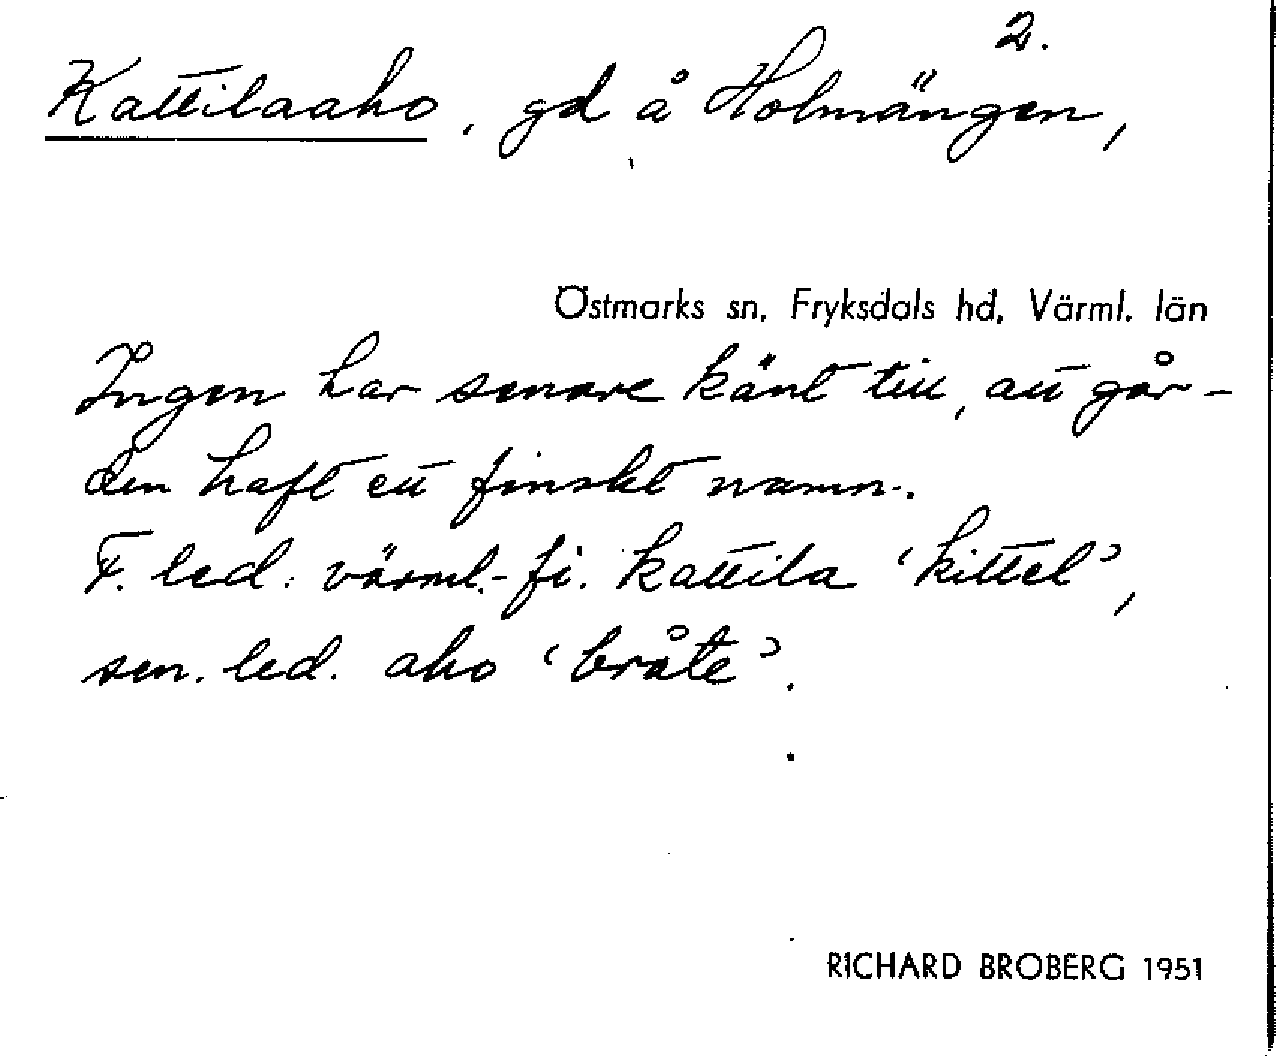 2.
Kattilaaho, gd å Holmängen,
Östmarks sn, Fryksdals hd, Värml. län
Ingen har senare känt till, att går-
den haft ett finskt namn.
F. led. värml.-fi. kattila ‘kittel’,
sen. led. aho ‘bråte’.
RICHARD BROBERG 1951